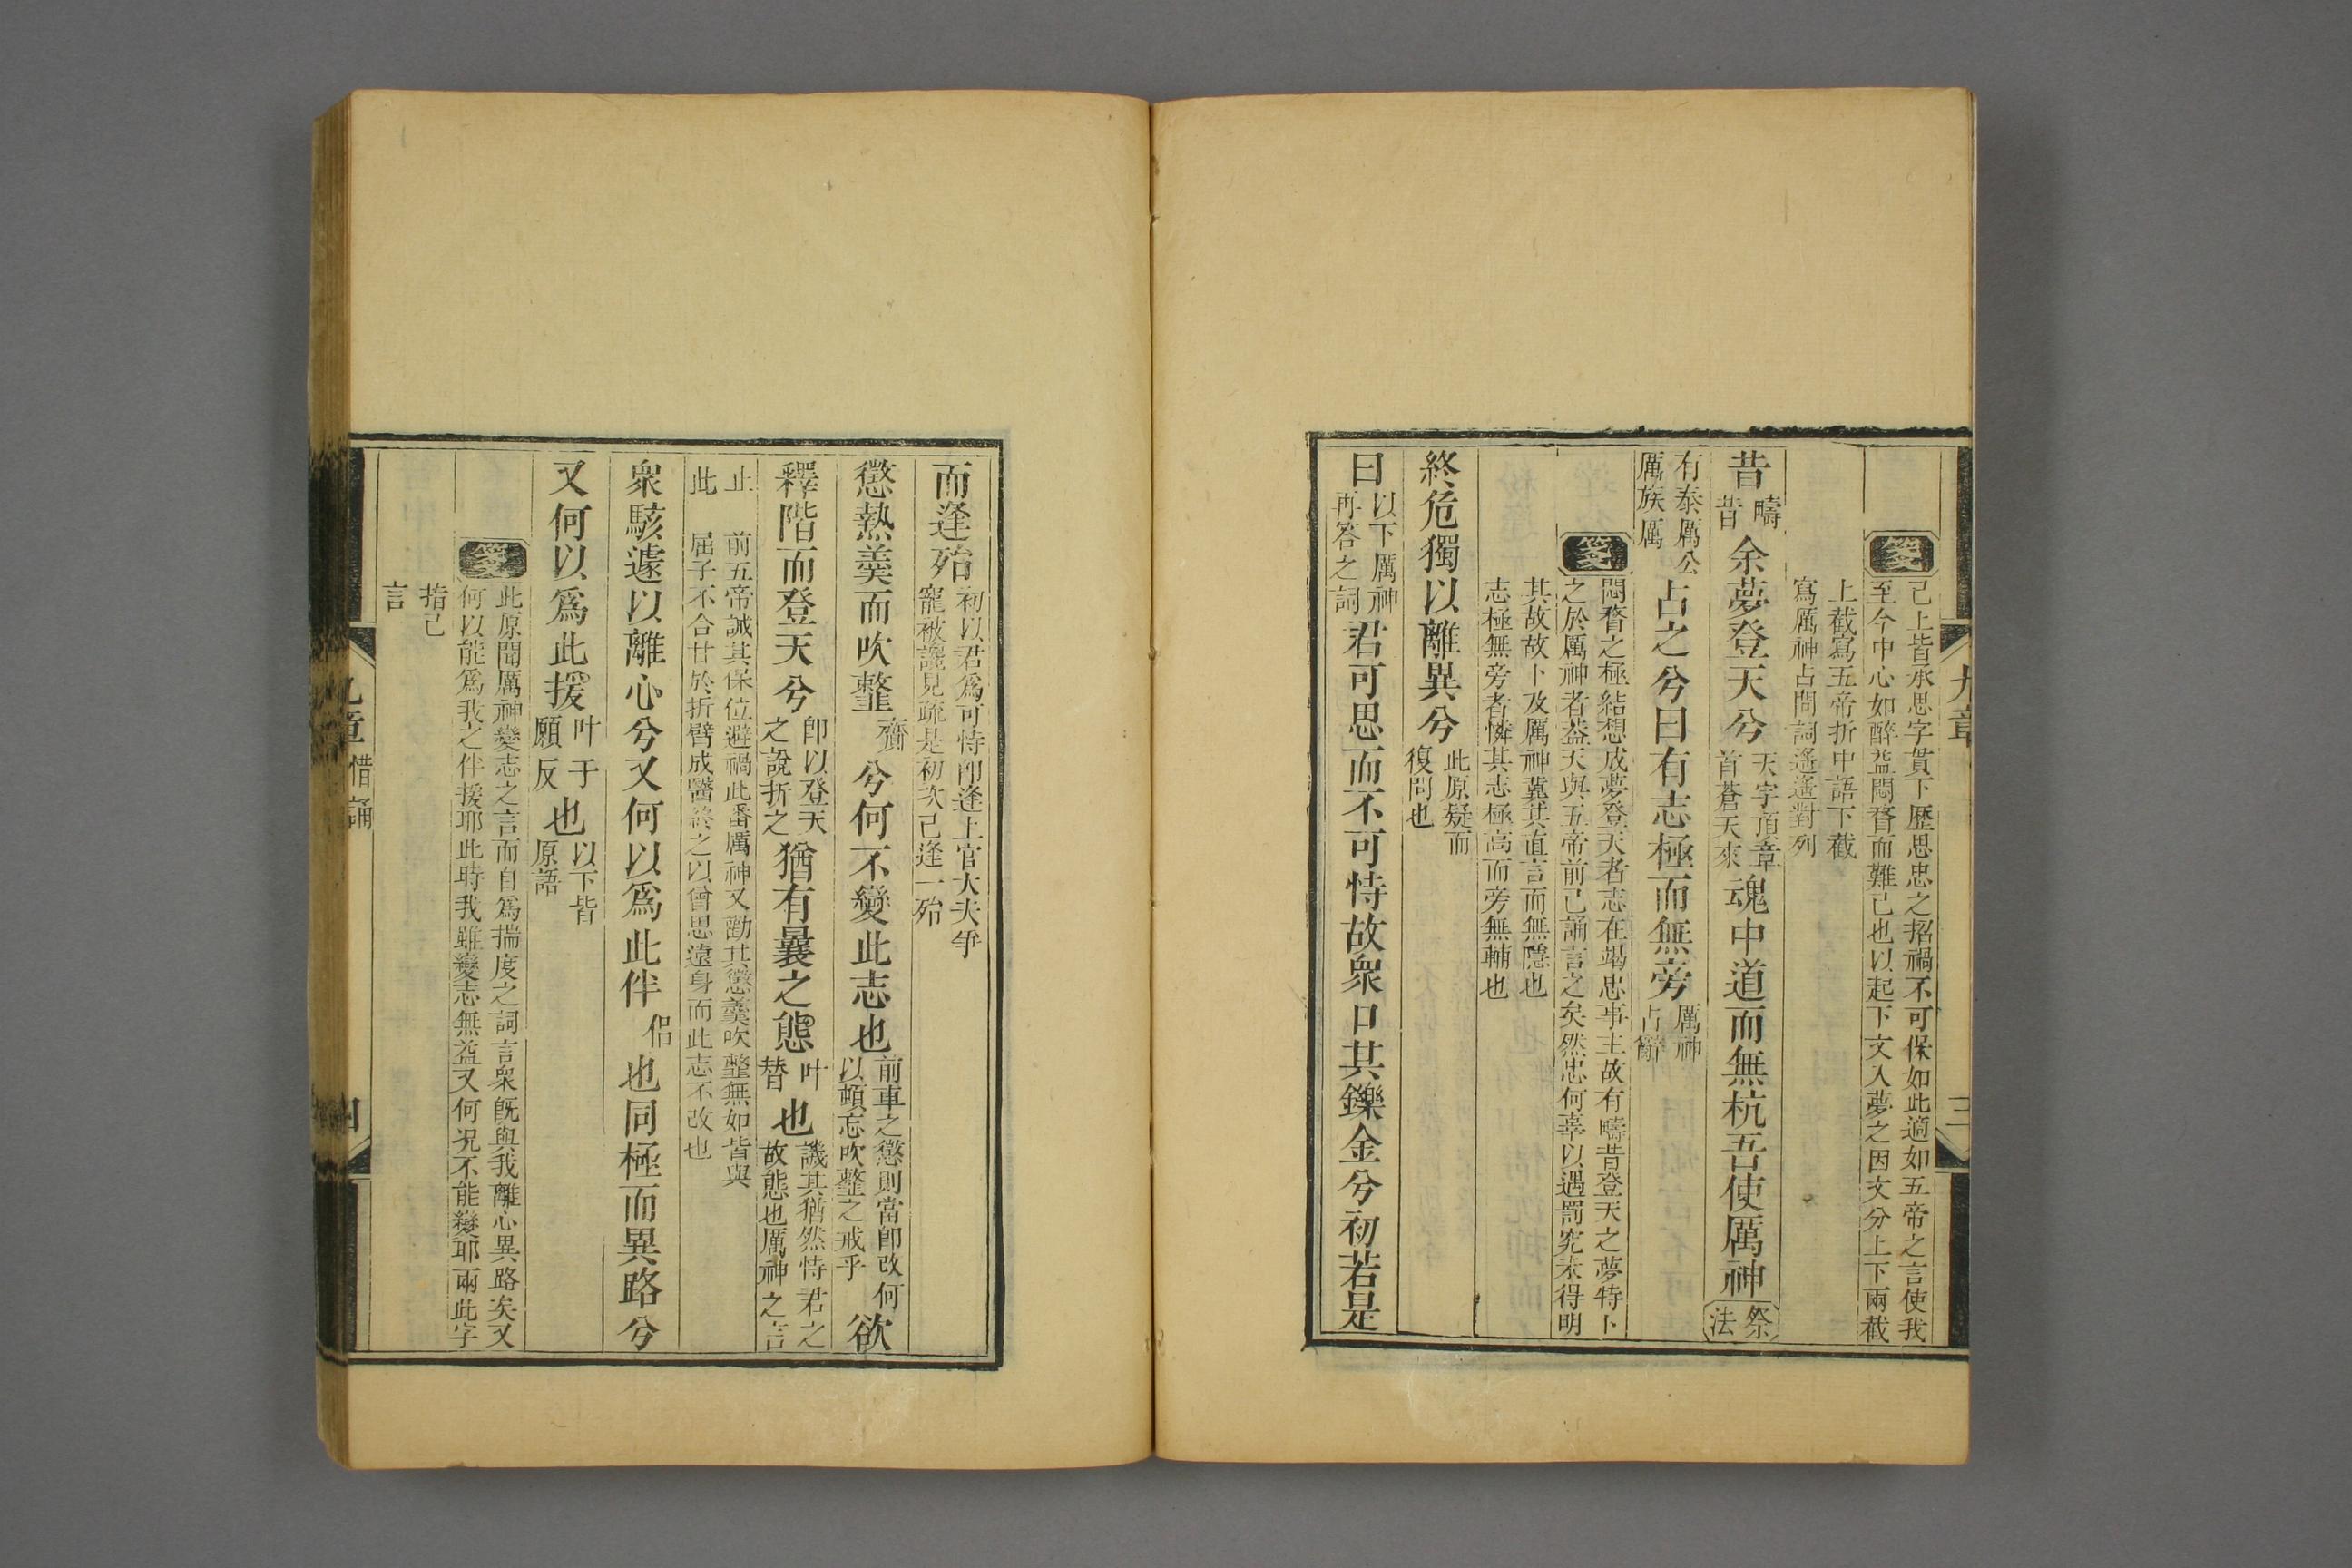 九章
三
箋
己上皆承思字貫下歷思忠之招禍不可保如此適如五帝之言使我
至今中心如醉盇悶瞀而難己也以起下文入夢之因文分上下兩截
上截寫五帝折中語下截
寫厲神占問詞遙遙對列
昔疇昔余夢登天兮天字頂章首蒼天來魂中道而無杭吾使厲神祭法
有泰厲公厲族厲占之兮曰有志極而無旁厲神占辭
箋
悶瞀之極結想成夢登天者志在竭忠事主故有疇昔登天之夢特卜
之於厲神者葢天與五帝前己誦言之矣然忠何辜以遇罰究未得明
其故故卜及厲神冀其直言而無隱也
志極無旁者憐其志極高而旁無輔也
終危獨以離異兮此原疑而復問也
曰以下厲神再答之詞君可思而不可恃故衆口其鑠金兮初若是
而逢殆初以君爲可恃卽逢上官大夫爭寵被讒見疏是初次己逢一殆
懲熱羹而吹䪡齊兮何不變此志也前車之懲則當卽改何以頓忘吹䪡之戒乎欲
釋階而登天兮卽以登天之說折之猶有曩之態叶替也譏其猶然恃君之故態也厲神之言
止此
前五帝誠其保位避禍此番厲神又勸其懲羹吹䪡無如皆與
屈子不合甘於折臂成醫終之以曾思遠身而此志不改也
衆駭遽以離心兮又何以爲此伴侶也同極而異路兮
又何以爲此援叶于願反也以下皆原語
箋
此原聞厲神變志之言而自爲揣度之詞言衆旣與我離心異路矣又
何以能爲我之伴援耶此時我雖變志無益又何況不能變耶兩此字
指己
言
九章
惜誦
四